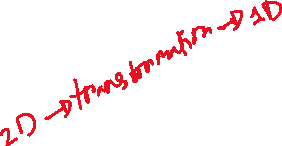 2D → transformation → 1D